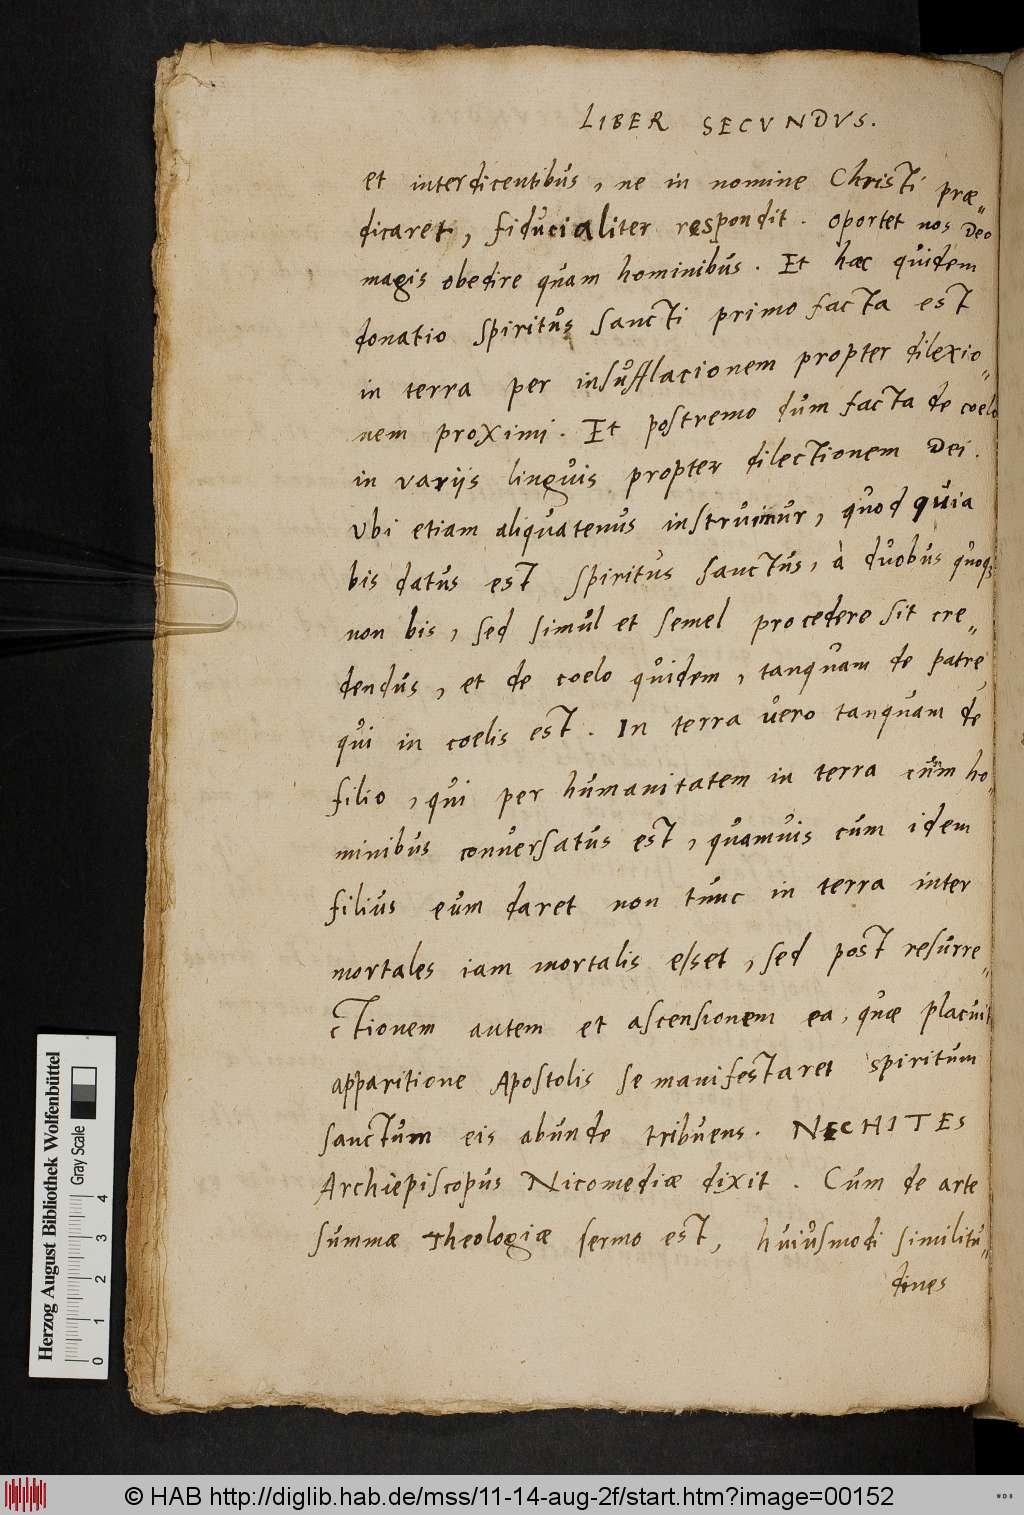 LIBER SECVNDVS.
et interdicentibus, ne in nomine Christi præ„
dicaret, fiducialiter respondit. oportet nos Deo
magis obedire quam hominibus. Et hæc quidem
donatio spiritus sancti primo facta est
in terra per insufflacionem propter dilexio„
nem proximi. Et postremo dum facta de coelo
in varijs linguis propter dilectionem Dei.
Vbi etiam aliquatenus instruimur, quod quia
bis datus est spiritus sanctus, à duobus quoq;
non bis, sed simul et semel procedere sit cre„
dendus, et de coelo quidem, tanquam de patre
qui in coelis est. In terra vero tanquam de
filio, qui per humanitatem in terra cum ho„
minibus conversatus est, quamvis cum idem
filius eum daret non tunc in terra inter
mortales iam mortalis esset, sed post resurre„
ctionem autem et ascensionem ea, quæ placuit
apparitione Apostolis se manifestaret spiritum
sanctum eis abunde tribuens. NECHITES
Archiepiscopus Nicomediæ dixit. Cum de arte
summæ Theologiæ sermo est, huiusmodi similitu„
dines
Herzog August Bibliothek Wolfenbüttel
Gray Scale
0 1 2 3 4
© HAB http://diglib.hab.de/mss/11-14-aug-2f/start.htm?image=00152